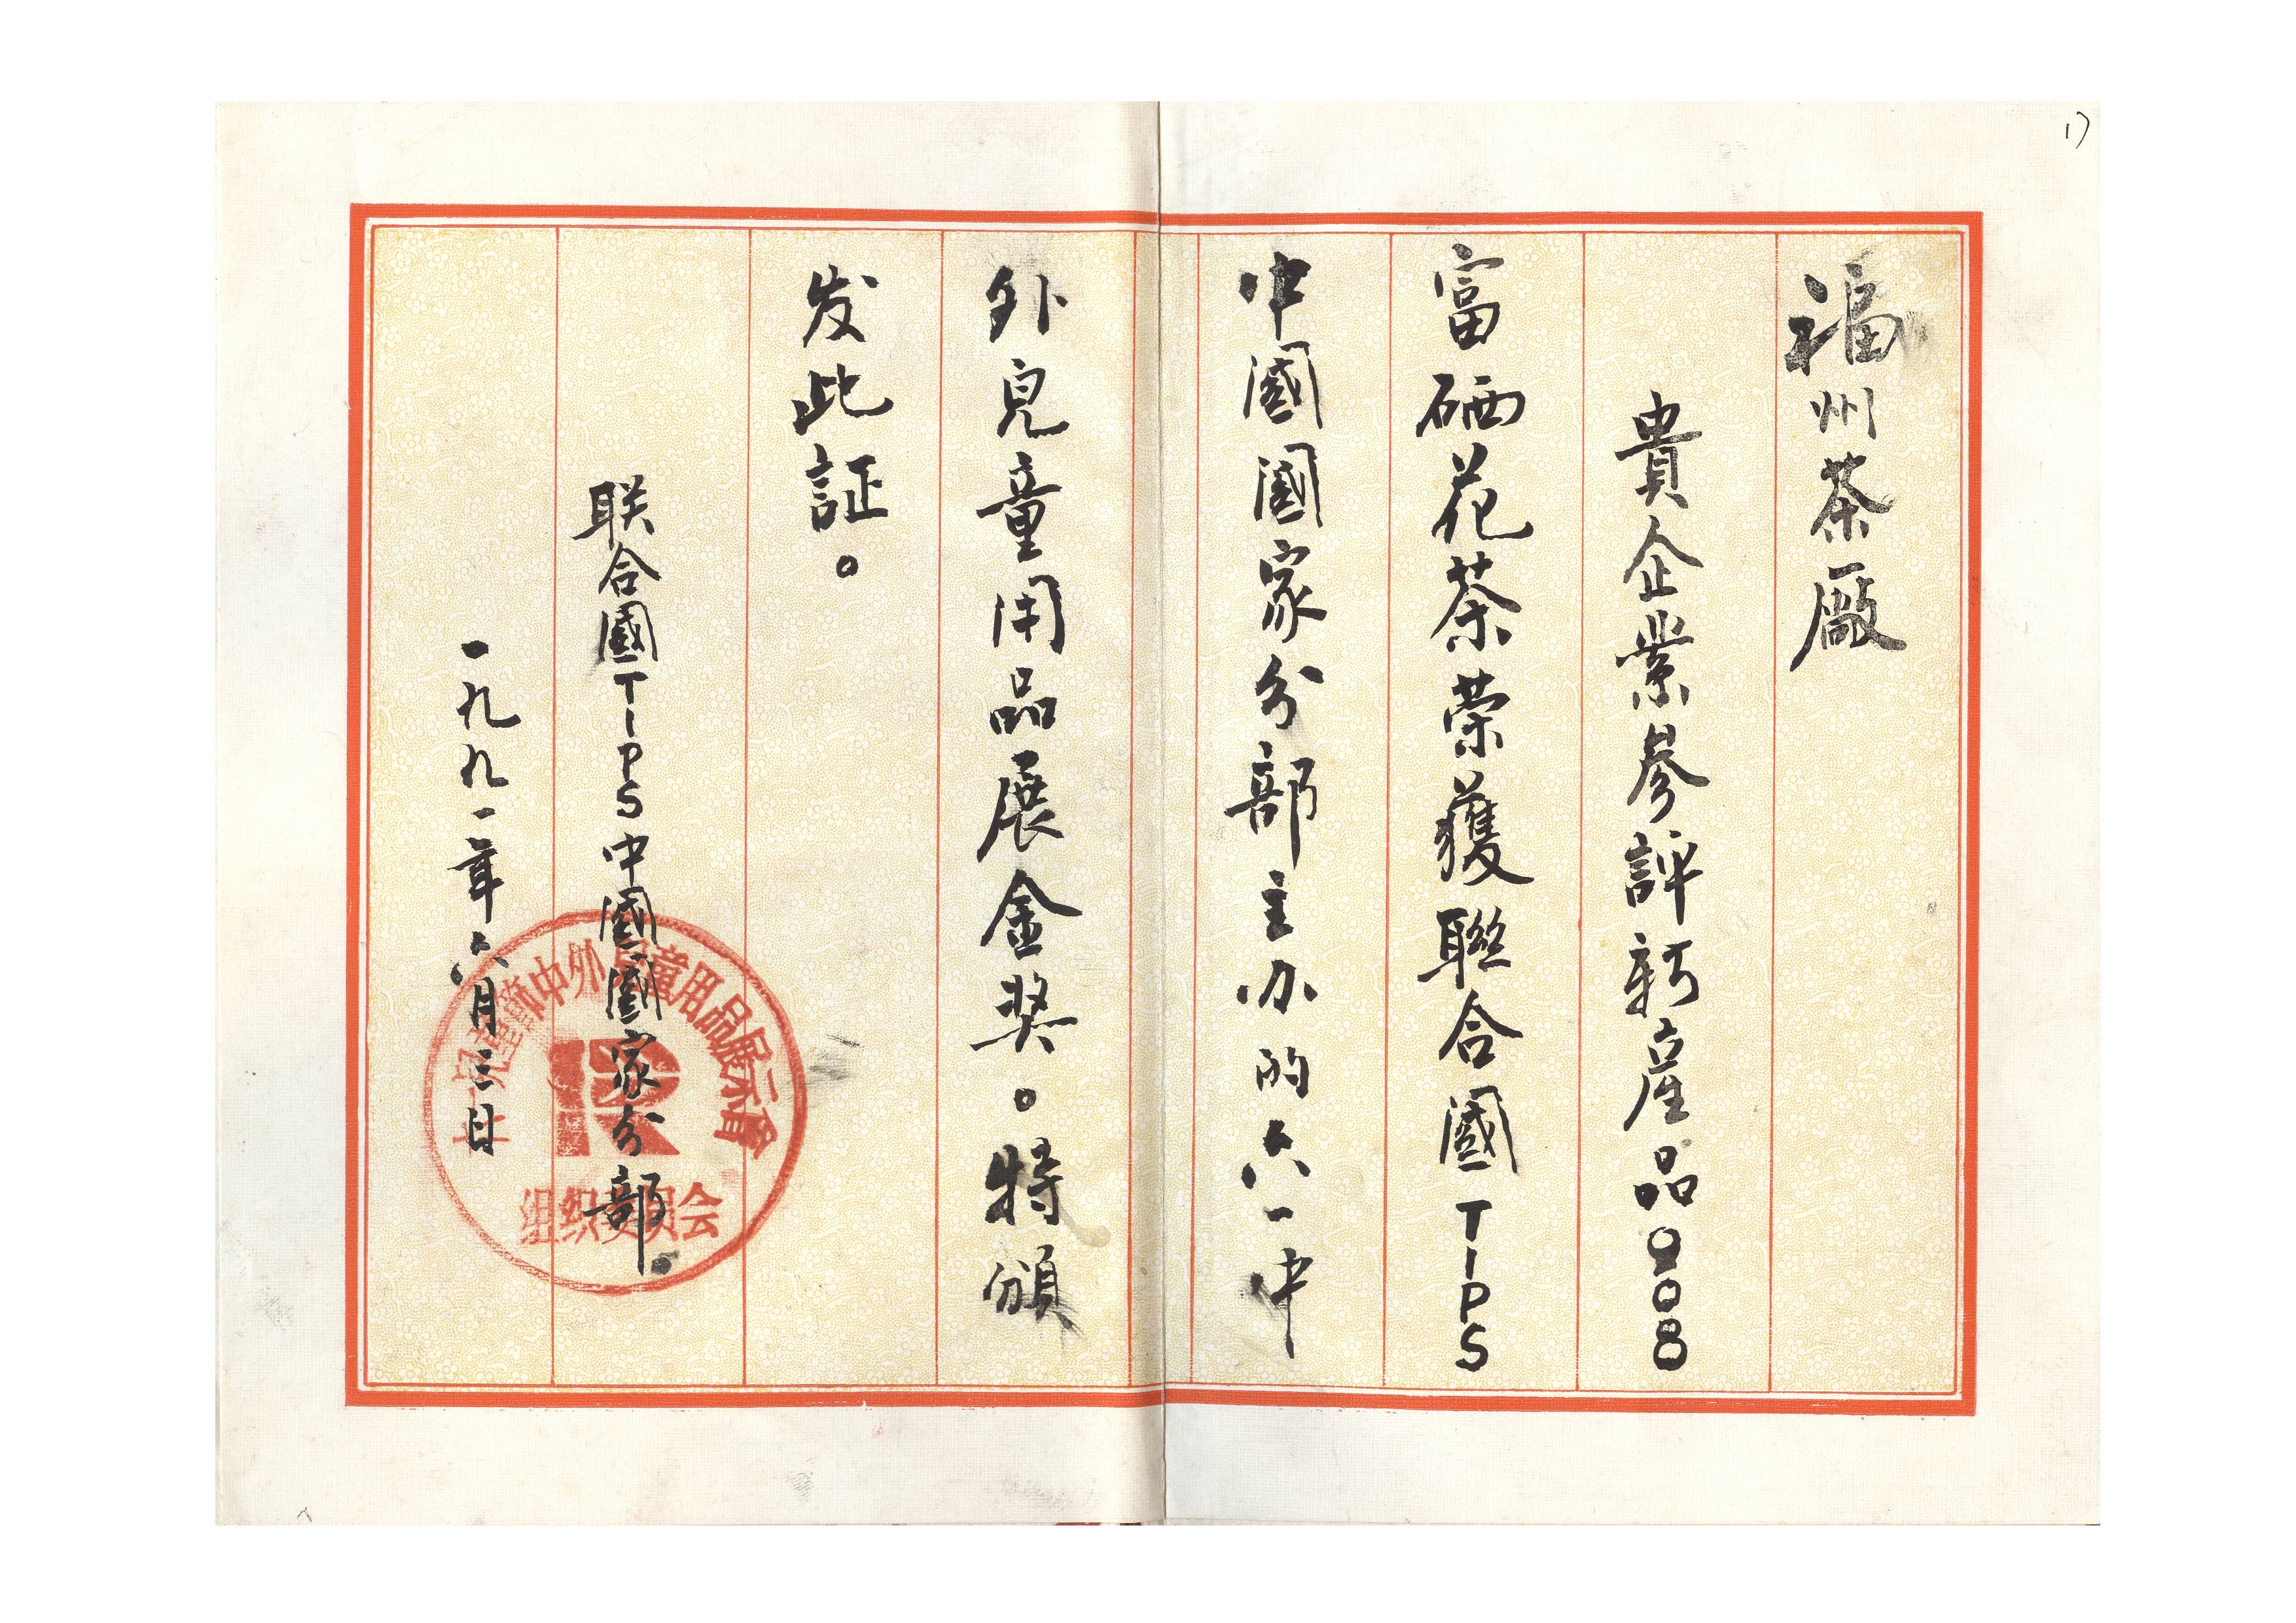 17
福州茶廠
貴企業参評新産品908
富硒花茶荣獲聯合國TIPS
中國國家分部主办的六一中
外兒童用品展金奖。特頒
发此証。
联合國TIPS中國國家分部。
一九九一年六月三日
六一兒童節中外兒童用品展示會
组织委员会